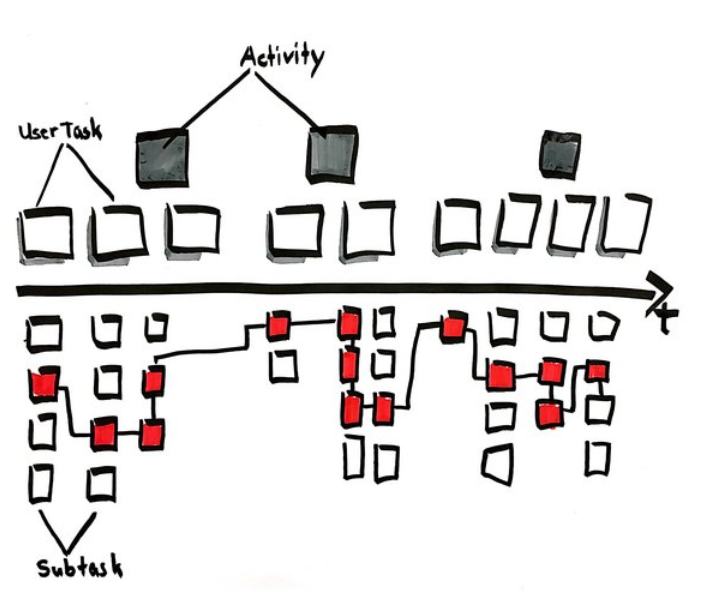 Activity
User Task
t
Subtask